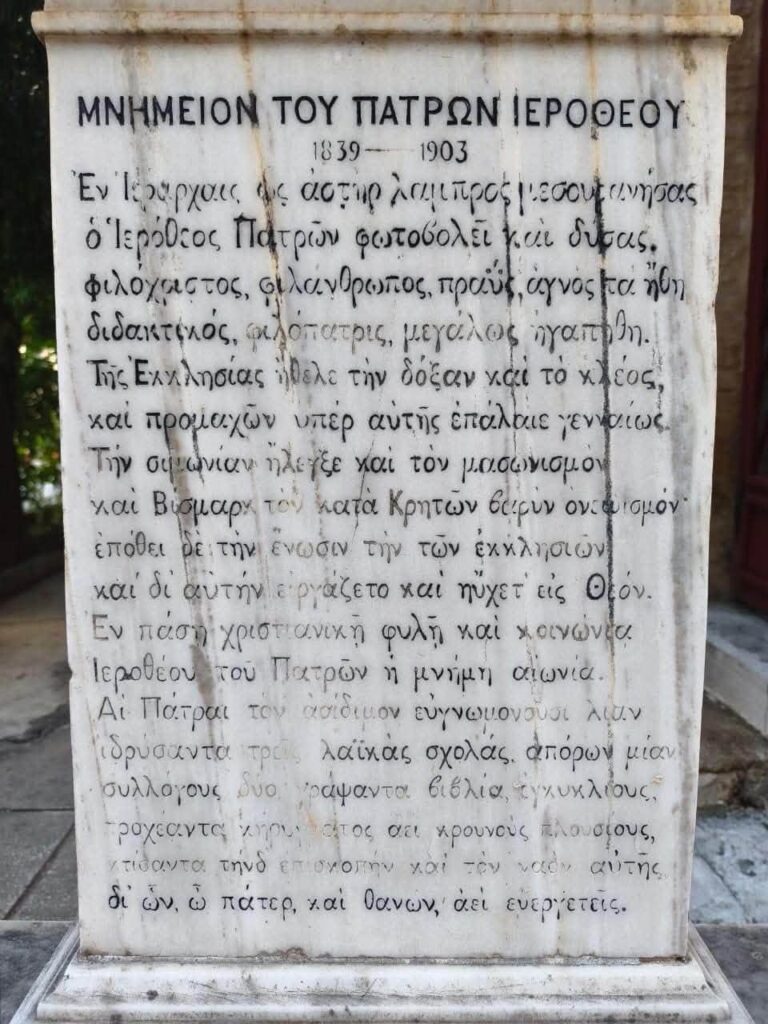 ΜΝΗΜΕΙΟΝ ΤΟΥ ΠΑΤΡΩΝ ΙΕΡΟΘΕΟΥ
1839 — 1903
Ἐν Ἱεράρχαις ὡς ἀστὴρ λαμπρὸς μεσουρανήσας
ὁ Ἱερόθεος Πατρῶν φωτοβολεῖ καὶ δύσας.
φιλόχριστος, φιλάνθρωπος, πραΰς, ἁγνὸς τὰ ἤθη
διδακτικός, φιλόπατρις, μεγάλως ἠγαπήθη.
Τῆς Ἐκκλησίας ἤθελε τὴν δόξαν καὶ τὸ κλέος,
καὶ προμαχῶν ὑπὲρ αὐτῆς ἐπάλαιε γενναίως.
Τὴν σιμωνίαν ἤλεγξε καὶ τὸν μασωνισμὸν
καὶ Βίσμαρκ τὸν κατὰ Κρητῶν βαρὺν ὀνειδισμόν·
ἐπόθει δὲ τὴν ἕνωσιν τὴν τῶν ἐκκλησιῶν
καὶ δι' αὐτὴν εἰργάζετο καὶ ηὔχετ' εἰς Θεόν.
Ἐν πάσῃ χριστιανικῇ φυλῇ καὶ κοινωνίᾳ
Ἱεροθέου τοῦ Πατρῶν ἡ μνήμη αἰωνία.
Αἱ Πάτραι τὸν ἀοίδιμον εὐγνωμονοῦσι λίαν
ἱδρύσαντα τρεῖς λαϊκὰς σχολάς, ἀπόρων μίαν
συλλόγους δύο, γράψαντα βιβλία, ἐγκυκλίους,
προχέαντα κηρύγματος ἀεὶ κρουνοὺς πλουσίους,
κτίσαντα τήνδ' ἐπισκοπὴν καὶ τὸν ναὸν αὐτῆς
δι' ὧν, ὦ πάτερ, καὶ θανών, ἀεὶ εὐεργετεῖς.